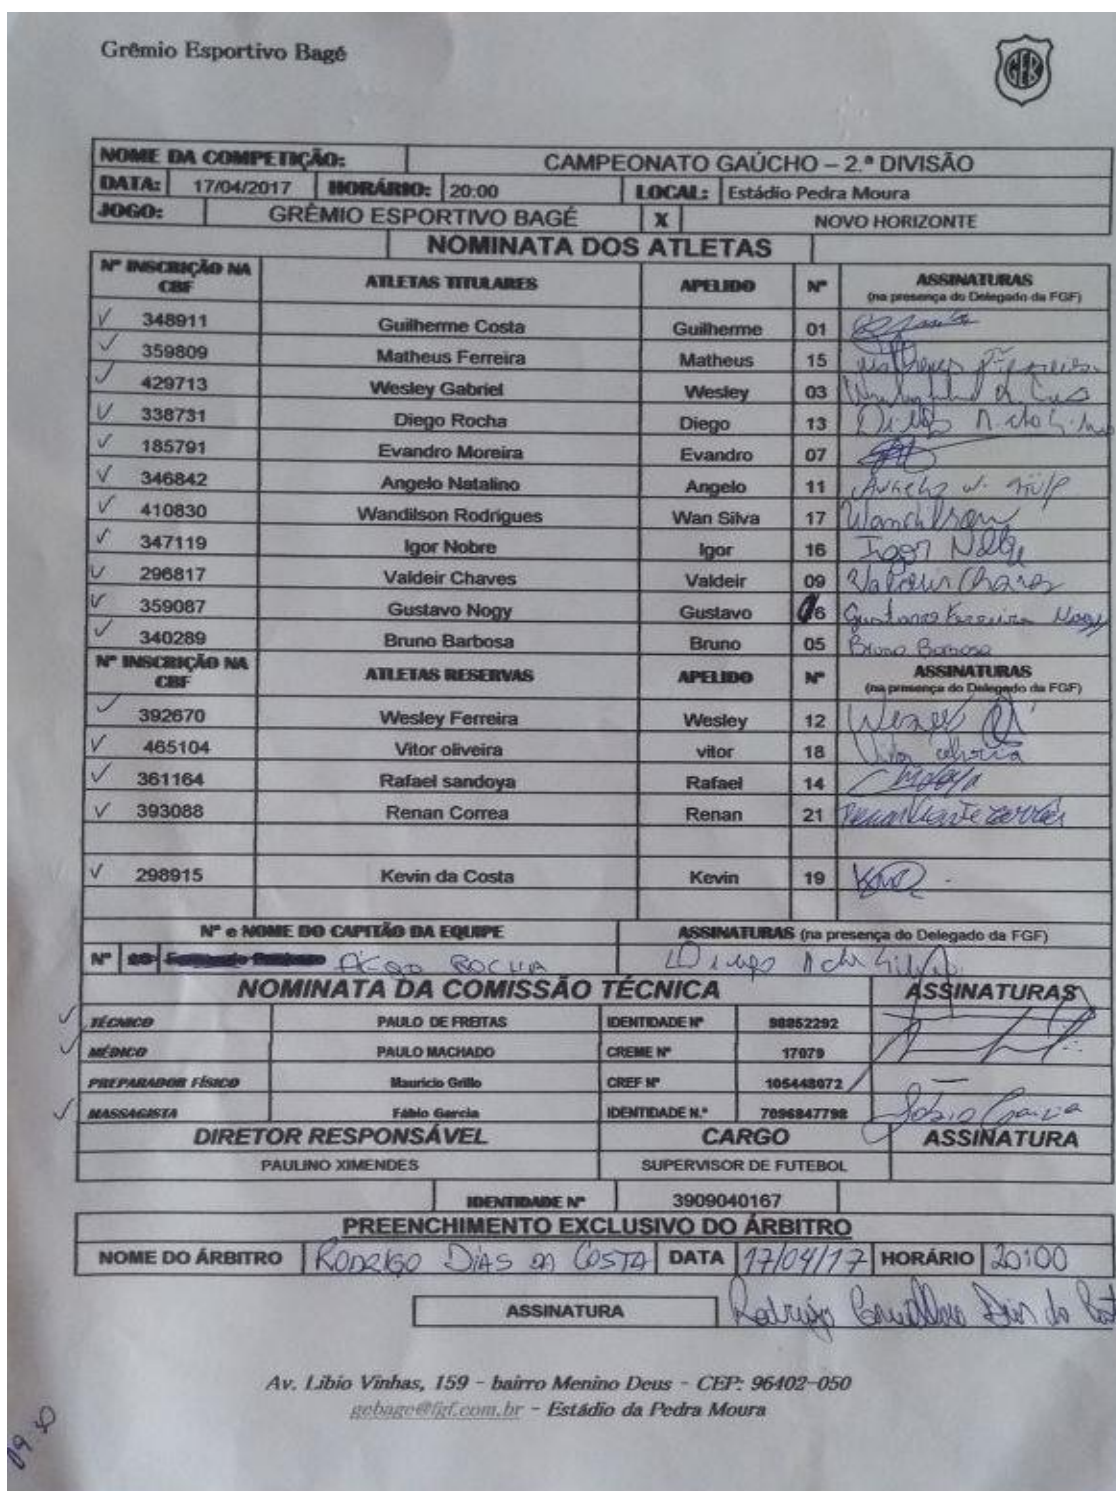 Grêmio Esportivo Bagé
GEB
NOME DA COMPETIÇÃO: CAMPEONATO GAÚCHO – 2.ª DIVISÃO
DATA: 17/04/2017 HORÁRIO: 20:00 LOCAL: Estádio Pedra Moura
JOGO: GRÊMIO ESPORTIVO BAGÉ X NOVO HORIZONTE
NOMINATA DOS ATLETAS
Nº INSCRIÇÃO NA CBF ATLETAS TITULARES APELIDO Nº ASSINATURAS (na presença do Delegado da FGF)
348911 Guilherme Costa Guilherme 01
359809 Matheus Ferreira Matheus 15 Matheus Ferreira
429713 Wesley Gabriel Wesley 03
338731 Diego Rocha Diego 13 Diego
185791 Evandro Moreira Evandro 07
346842 Angelo Natalino Angelo 11 Angelo
410830 Wandilson Rodrigues Wan Silva 17 Wandilson
347119 Igor Nobre Igor 16 Igor
296817 Valdeir Chaves Valdeir 09 Valdeir Chaves
359087 Gustavo Nogy Gustavo 6 Gustavo Ferreira Nogy
340289 Bruno Barbosa Bruno 05 Bruno Barbosa
Nº INSCRIÇÃO NA CBF ATLETAS RESERVAS APELIDO Nº ASSINATURAS (na presença do Delegado da FGF)
392670 Wesley Ferreira Wesley 12 Wesley
465104 Vitor oliveira vitor 18 Vitor
361164 Rafael sandoya Rafael 14
393088 Renan Correa Renan 21 Renan
298915 Kevin da Costa Kevin 19
Nº e NOME DO CAPITÃO DA EQUIPE ASSINATURAS (na presença do Delegado da FGF)
Nº ROCHA Diego
NOMINATA DA COMISSÃO TÉCNICA ASSINATURAS
TÉCNICO PAULO DE FREITAS IDENTIDADE Nº 98852292
MÉDICO PAULO MACHADO CREME Nº 17079
PREPARADOR FÍSICO Mauricio Grillo CREF Nº 105448072
MASSAGISTA Fábio Garcia IDENTIDADE N.º 7096847798 Fábio Garcia
DIRETOR RESPONSÁVEL CARGO ASSINATURA
PAULINO XIMENDES SUPERVISOR DE FUTEBOL
IDENTIDADE Nº 3909040167
PREENCHIMENTO EXCLUSIVO DO ÁRBITRO
NOME DO ÁRBITRO RODRIGO DIAS DA COSTA DATA 17/04/17 HORÁRIO 20:00
ASSINATURA Rodrigo
Av. Libio Vinhas, 159 - bairro Menino Deus - CEP: 96402-050
gebage@fgf.com.br - Estádio da Pedra Moura